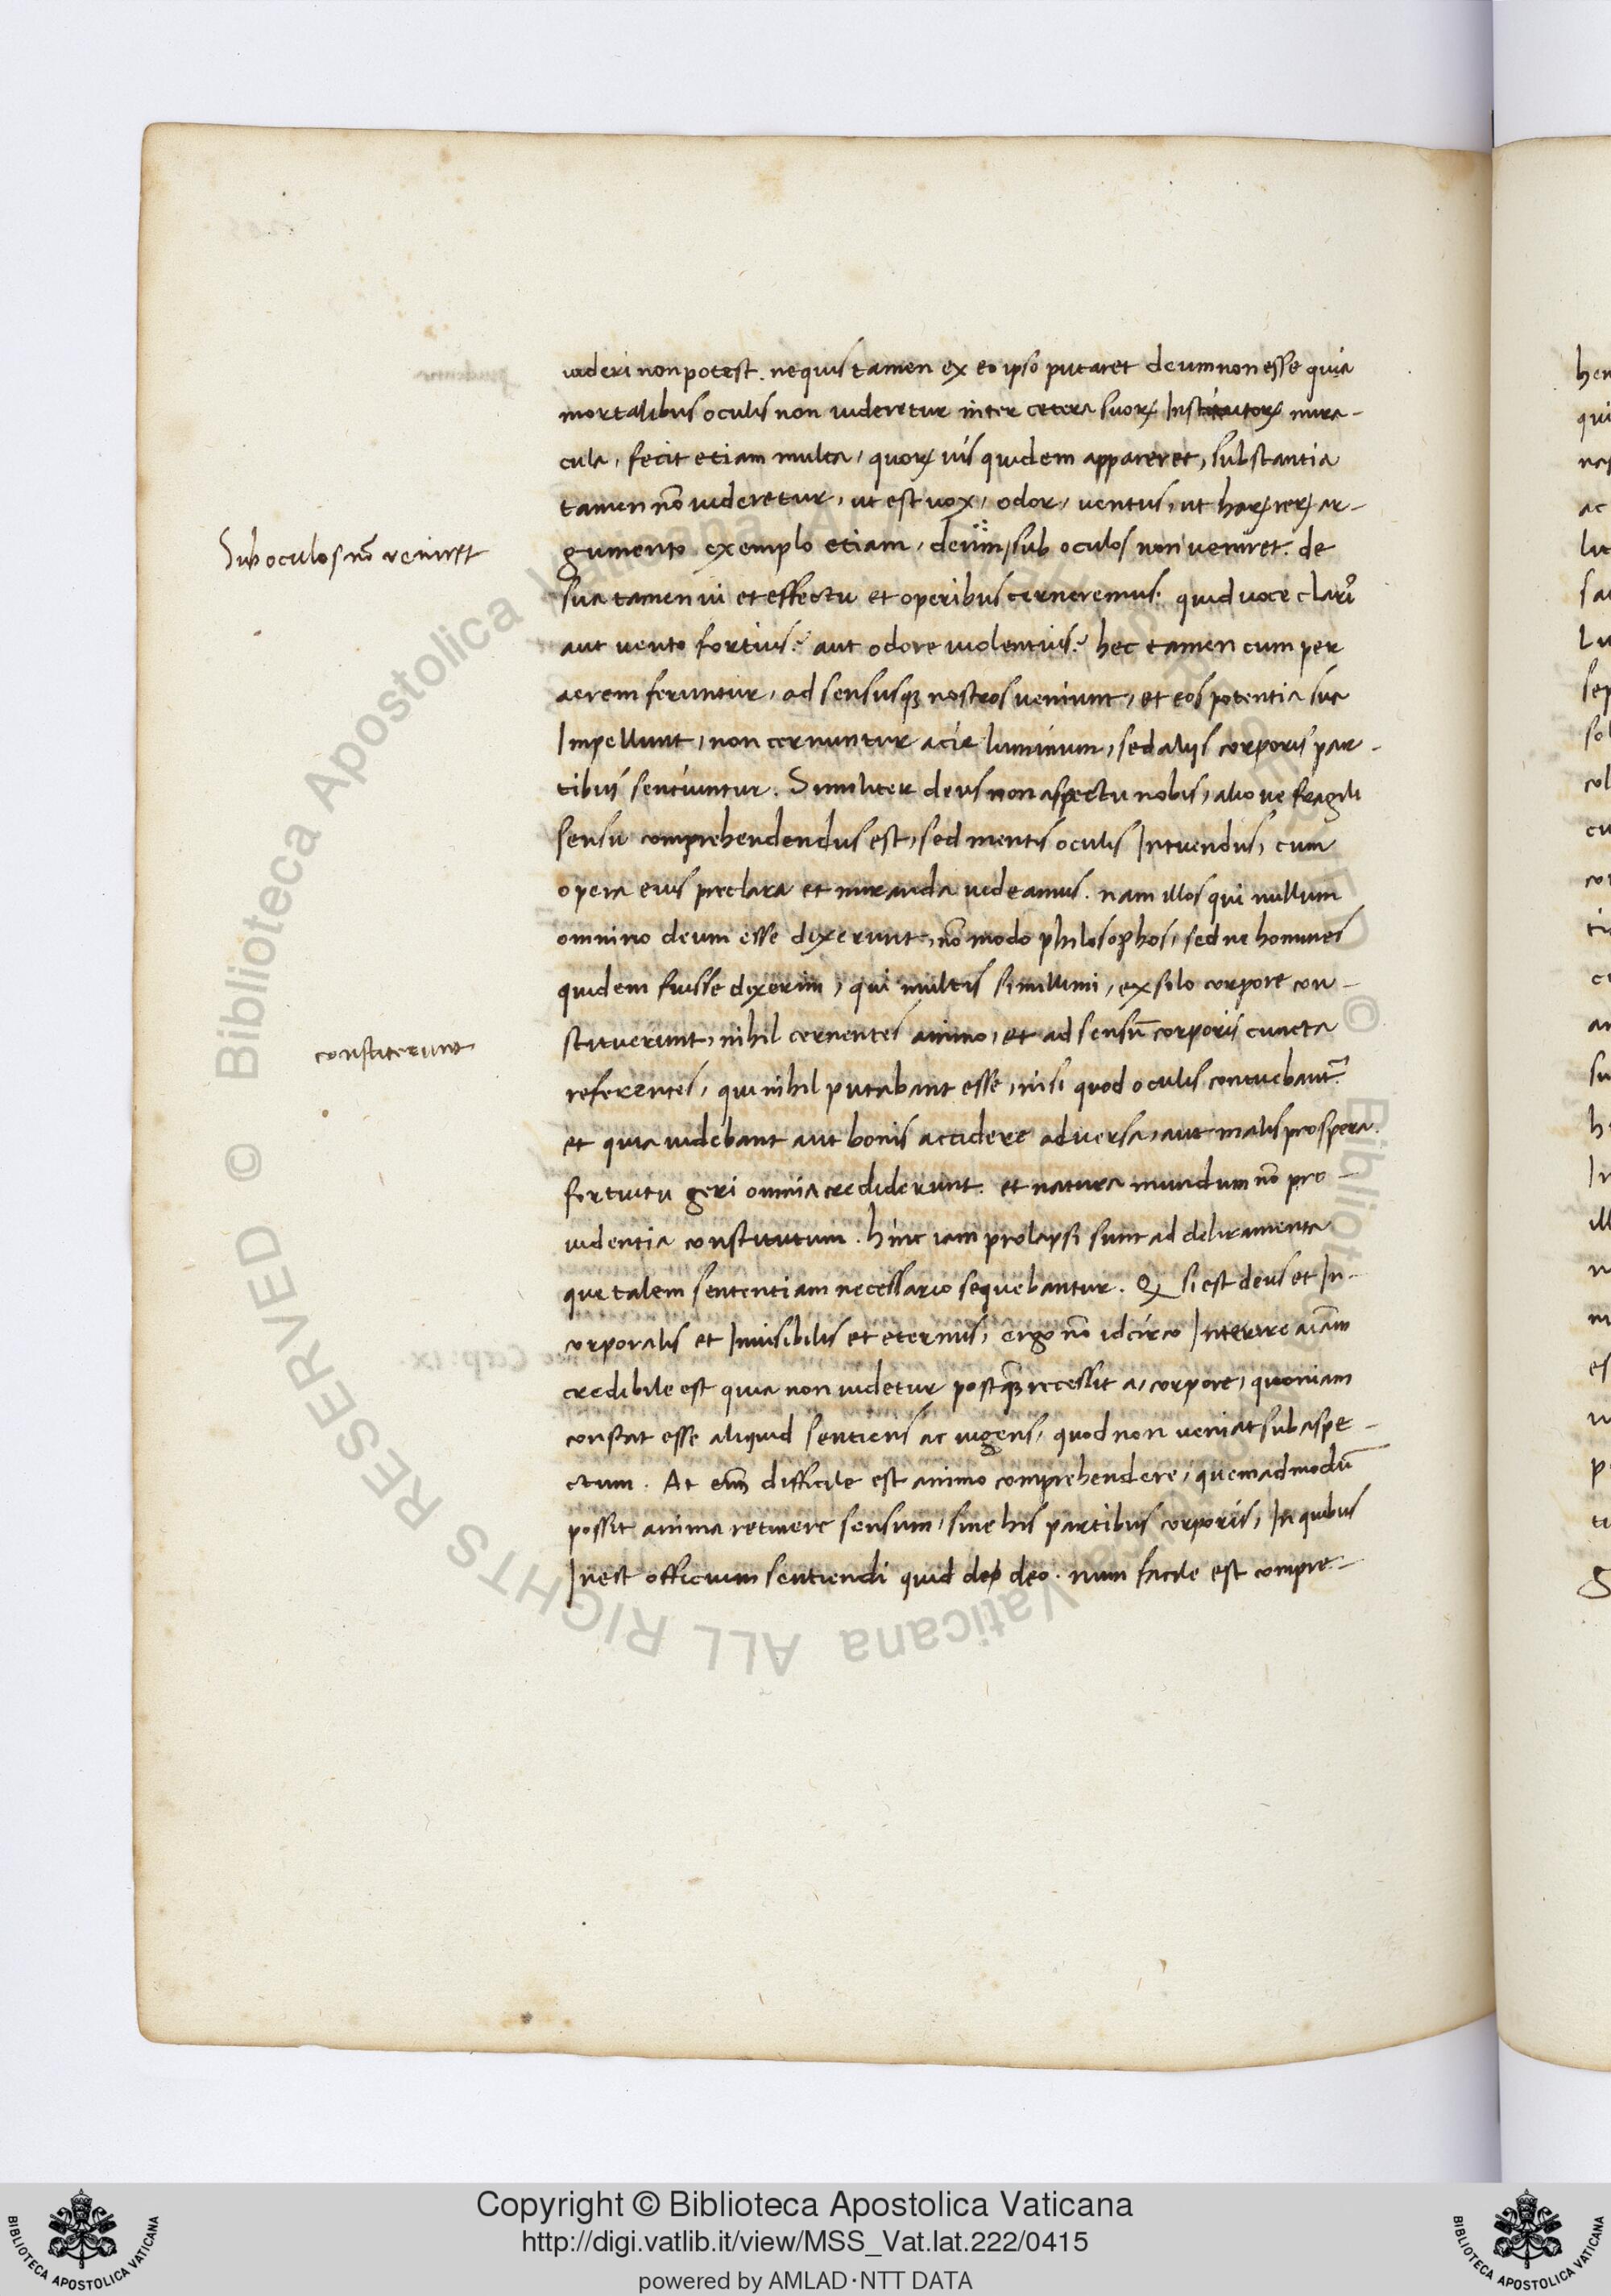 uideri non potest. ne quis tamen ex eo ipso putaret deum non esse quia
mortalibus oculis non uideretur inter cetera suoꝝ Institutoꝝ mira-
cula, fecit etiam multa, quoꝝ uis quidem appareret, substantia
tamen nō uideretur, ut est uox, odor, uentus, ut haꝝ reꝝ ar-
Sub oculos nō veniret
gumento exemplo etiam, deum, sub oculos non veniret. de
sua tamen ui et effectu et operibus cerneremus. quid uoce clariꝰ
aut uento fortius? aut odore uiolentius? hec tamen cum per
aerem feruntur, ad sensusqꝫ nostros veniunt, et eos potentia sua
Impellunt, non cernuntur acie luminum, sed alijs corporis par-
tibus sentiuntur. Similiter deus non aspectu nobis, alio ue fragili
sensu comprehendendus est, sed mentis oculis Intuendus, cum
opera eius preclara et miranda uideamus. nam illos qui nullum
omnino deum esse dixerunt, nō modo philosophos, sed ne homines
quidem fuisse dixerim, qui multis simillimi, ex solo corpore con-
constiterunt
stituerunt, nihil cernentes animo, et ad sensū corporis cuncta
referentes, qui nihil putabant esse, nisi quod oculis contuebant᷑
et quia uidebant aut bonis accidere aduersa, aut malis prospera.
fortuitu geri omnia crediderunt. et natura mundum nō pro-
uidentia constitutum. hinc iam prolapsi sunt ad deliramenta
que talem sententiam necessario sequebantur. Qꝫ si est deus et In-
corporalis et Inuisibilis et eternus, ergo nō idcirco Interire aīam
credibile est quia non uidetur postqꝫ recessit a, corpore, quoniam
constat esse aliquid sentiens ac uigens, quod non veniat sub aspe-
ctum. At enī difficile est animo comprehendere, quemadmodū
possit anima retinere sensum, sine his partibus corporis, In quibus
Inest officium sentiendi quid de deo. num facile est compre-
Copyright © Biblioteca Apostolica Vaticana
http://digi.vatlib.it/view/MSS_Vat.lat.222/0415
powered by AMLAD·NTT DATA